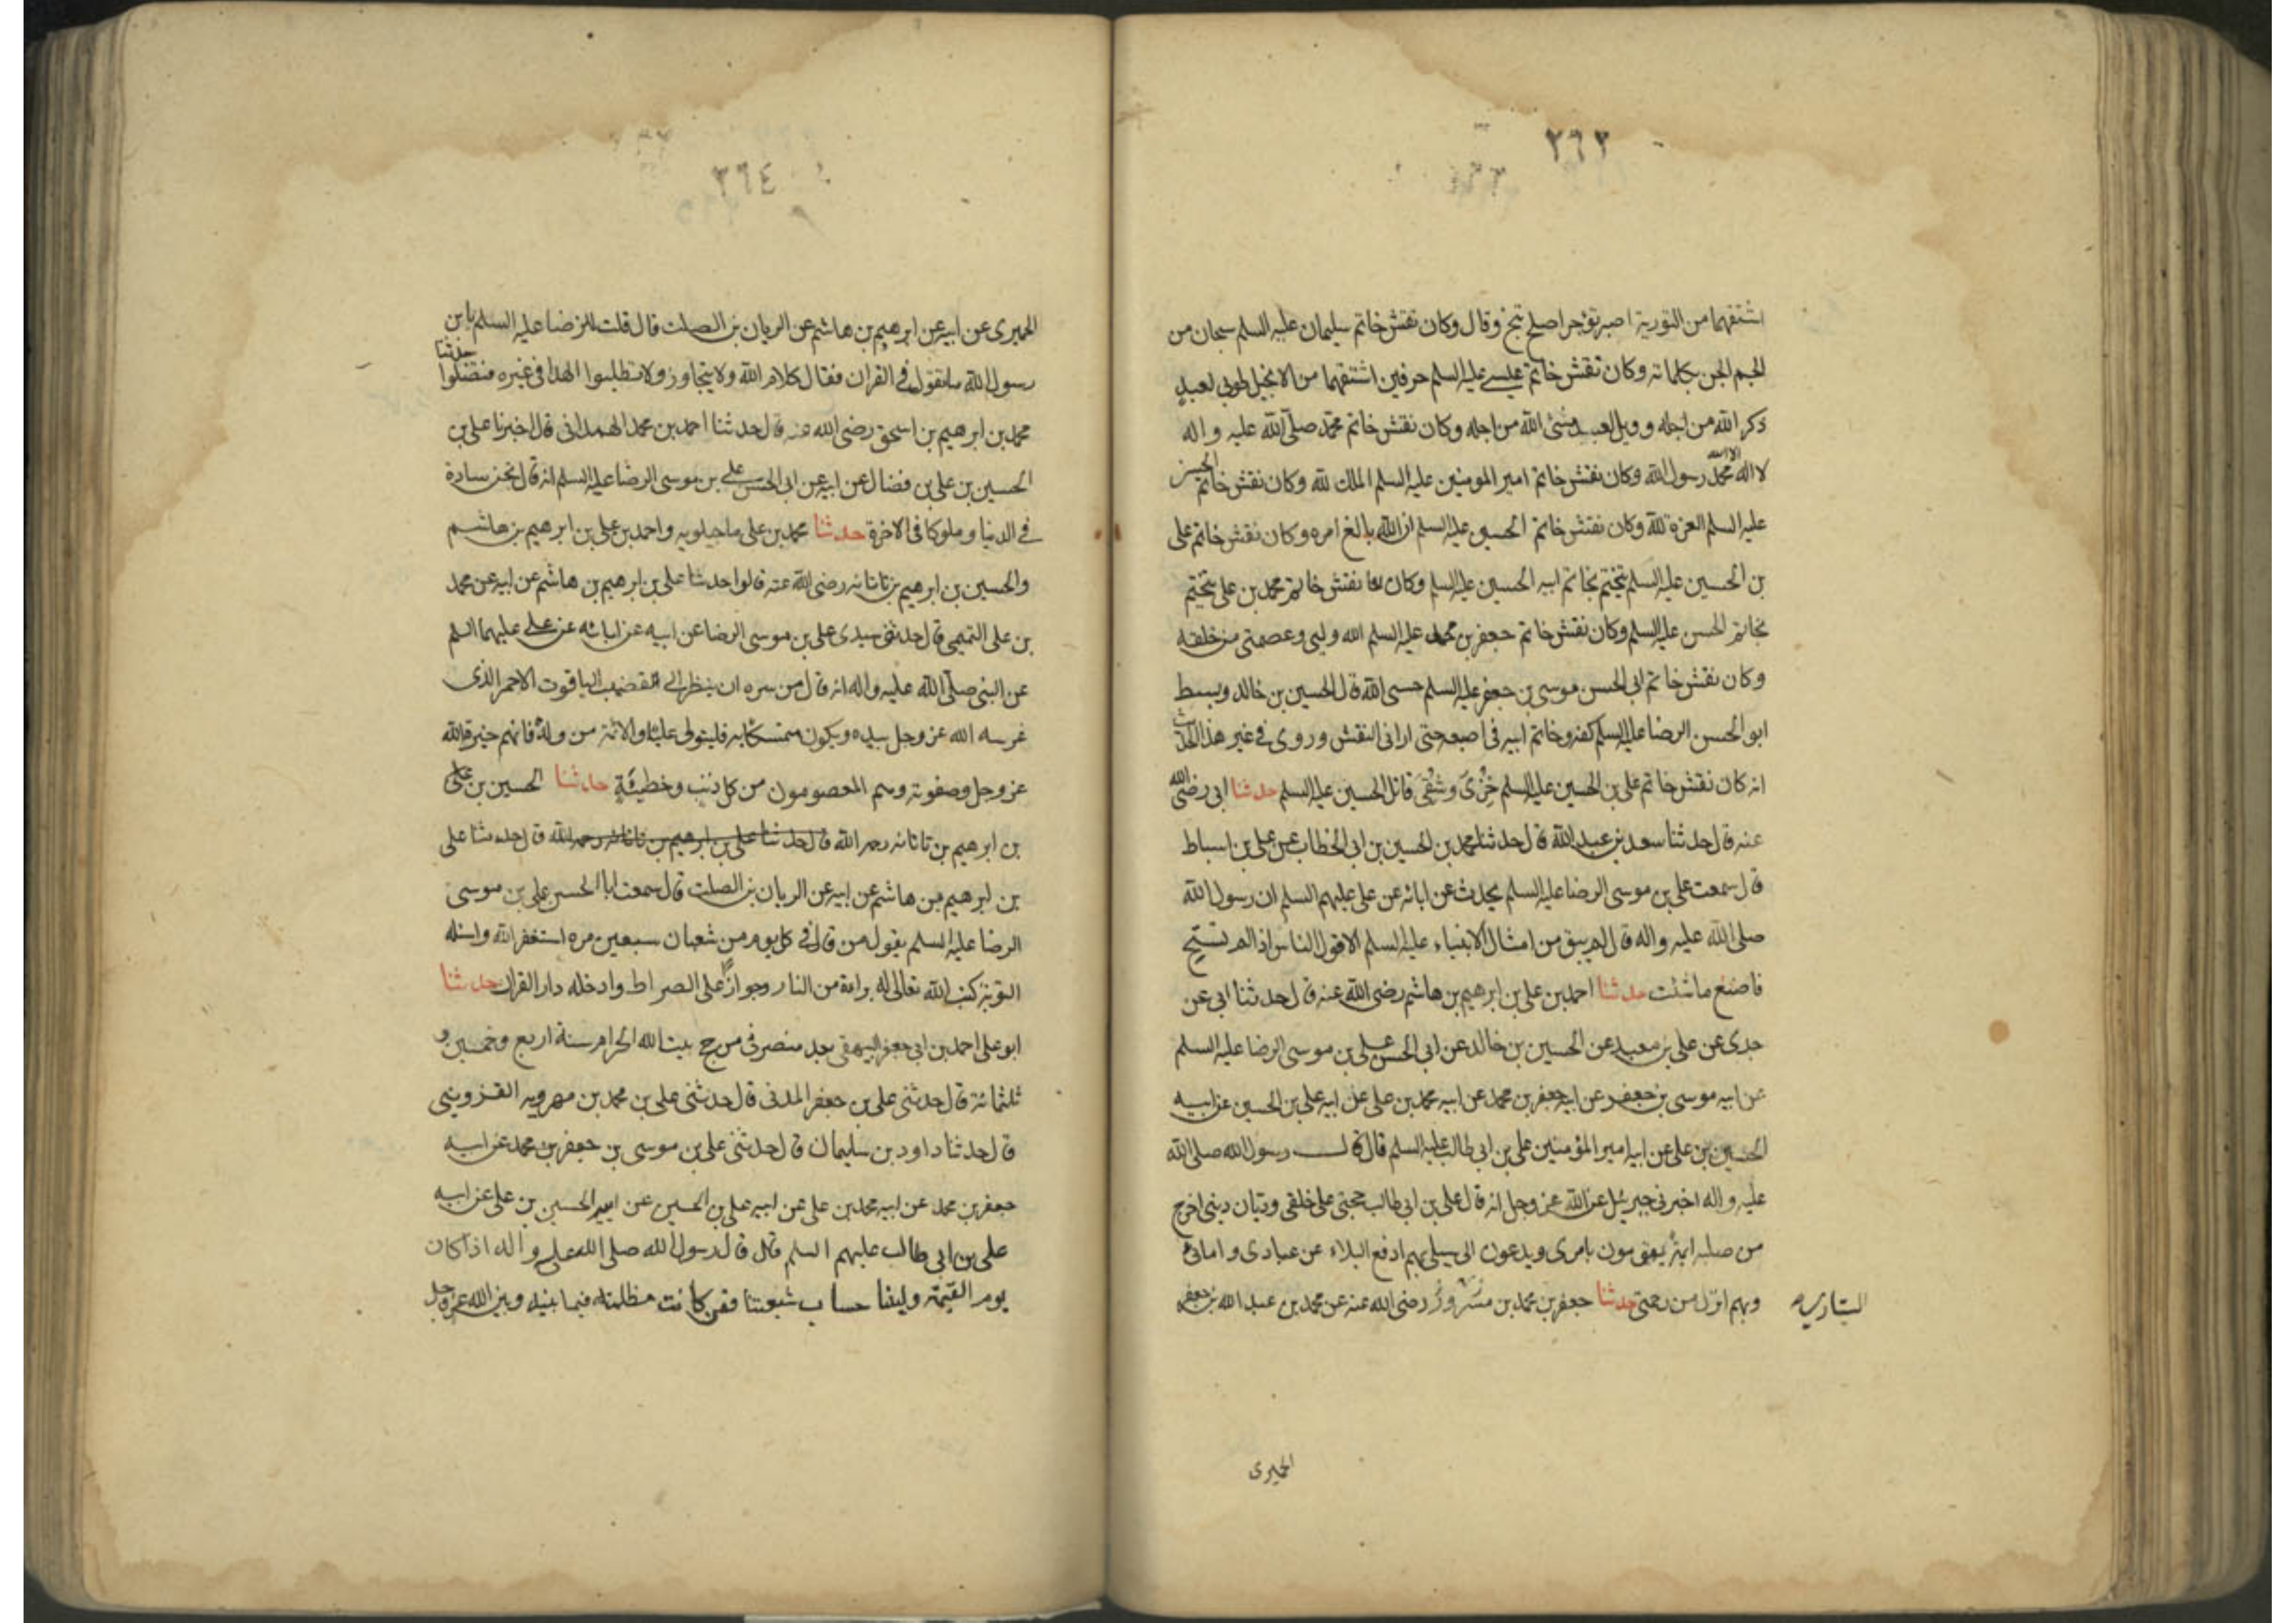 ٢٦٣
اشتقهما من التورية اصبر توجر اصلح تنج وقال وكان نقش خاتم سليمان عليه السلم سبحان من
الجم الجن بكلماته وكان نقش خاتم عيسى عليه السلم حرفين اشتقهما من الانجيل طوبى لعبد
ذكر الله من اجله وويل لعبد نسى الله من اجله وكان نقش خاتم محمد صلى الله عليه واله
لا اله الا الله محمد رسول الله وكان نقش خاتم امير المومنين عليه السلم الملك لله وكان نقش خاتم الحسن
عليه السلم العزة لله وكان نقش خاتم الحسين عليه السلم ان الله بالغ امره وكان نقش خاتم على
بن الحسين عليه السلم يتختم بخاتم ابيه الحسين عليه السلم وكان نقش خاتم محمد بن على يتختم
بخاتم الحسن عليه السلم وكان نقش خاتم جعفر بن محمد عليه السلم الله وليى وعصمتى من خلقه
وكان نقش خاتم ابى الحسن موسى بن جعفر عليه السلم حسبى الله قال الحسين بن خالد وبسط
ابو الحسن الرضا عليه السلم كفه وخاتم ابيه فى اصبعه حتى ارانى النقش وروى فى غير هذا الحديث
انه كان نقش خاتم على بن الحسين عليه السلم خزى وشقى قاتل الحسين عليه السلم حدثنا ابى رضى الله
عنه قال حدثنا سعد بن عبد الله قال حدثنا محمد بن الحسين بن ابى الخطاب عن على بن اسباط
قال سمعت على بن موسى الرضا عليه السلم يحدث عن ابائه عن على عليهم السلم ان رسول الله
صلى الله عليه واله قال لم يبق من امثال الانبياء عليه السلم الا قول الناس اذا لم تستح
فاصنع ما شئت حدثنا احمد بن على بن ابرهيم بن هاشم رضى الله عنه قال حدثنا ابى عن
جدى عن على بن معبد عن الحسين بن خالد عن ابى الحسن على بن موسى الرضا عليه السلم
عن ابيه موسى بن جعفر عن ابيه جعفر بن محمد عن ابيه محمد بن على عن ابيه على بن الحسين عن ابيه
الحسين بن على عن ابيه امير المؤمنين على بن ابى طالب عليه السلم قال قال رسول الله صلى الله
عليه واله اخبرنى جبرئيل عن الله عز وجل انه قال على بن ابى طالب حجتى على خلقى وديان دينى اخرج
من صلبه ائمة يقومون بامرى ويدعون الى سبيلى بهم ادفع البلاء عن عبادى وامائى
وبهم انزل من رحمتى حدثنا جعفر بن محمد بن مسرور رضى الله عنه عن محمد بن عبد الله بن جعفر
الحميرى
٢٦٤
الحميرى عن ابيه عن ابرهيم بن هاشم عن الريان بن الصلت قال قلت للرضا عليه السلم يا بن
رسول الله ما تقول فى القران فقال كلام الله ولا يتجاوز ولا تطلبوا الهدا فى غيره فتضلوا حدثنا
محمد بن ابرهيم بن اسحق رضى الله عنه قال حدثنا احمد بن محمد الهمدانى قال اخبرنا على بن
الحسين بن على بن فضال عن ابيه عن ابى الحسن على بن موسى الرضا عليه السلم انه قال نحن سادة
فى الدنيا وملوكا فى الاخرة حدثنا محمد بن على ماجيلويه واحمد بن على بن ابرهيم بن هاشم
والحسين بن ابرهيم بن تاتانه رضى الله عنه قالوا حدثنا على بن ابرهيم بن هاشم عن ابيه عن محمد
بن على التميمى قال حدثنى سيدى على بن موسى الرضا عن ابيه عن ابائه عن على عليهما السلم
عن النبى صلى الله عليه واله انه قال من سره ان ينظر الى القضيب الياقوت الاحمر الذى
غرسه الله عز وجل بيده ويكون متمسكا به فليتولى عليا والائمة من ولده فانهم خيرة الله
عز وجل وصفوته وهم المعصومون من كل ذنب وخطيئة حدثنا الحسين بن على
بن ابرهيم بن تاتانه رحمه الله قال حدثنا على بن ابرهيم بن تاتانه رحمه الله قال حدثنا على
بن ابرهيم بن هاشم عن ابيه عن الريان بن الصلت قال سمعت ابا الحسن على بن موسى
الرضا عليه السلم يقول من قال فى كل يوم من شعبان سبعين مرة استغفر الله واسئله
التوبة كتب الله تعالى له براءة من النار وجوازا على الصراط وادخله دار القرار حدثنا
ابو على احمد بن ابى جعفر البيهقى بعد منصرفى من حج بيت الله الحرام سنة اربع وخمسين و
ثلثمائة قال حدثنى على بن جعفر المدنى قال حدثنى على بن محمد بن مهرويه القزوينى
قال حدثنا داود بن سليمان قال حدثنى على بن موسى بن جعفر بن محمد عن ابيه
جعفر بن محمد عن ابيه محمد بن على عن ابيه على بن الحسين عن ابيه الحسين بن على عن ابيه
على بن ابى طالب عليهم السلم قال قال رسول الله صلى الله عليه واله اذا كان
يوم القيمة ولينا حساب شيعتنا فمن كانت مظلمته فيما بينه وبين الله عز وجل